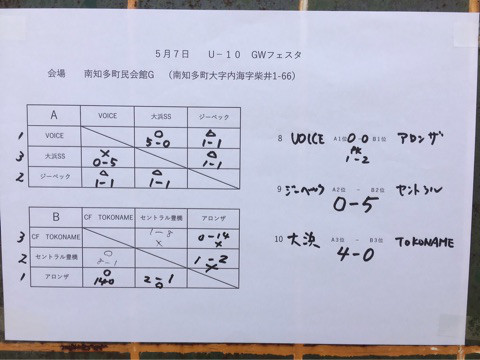 5月7日 U－10 GWフェスタ
会場 南知多町民会館G （南知多町大字内海字柴井1-66）
A VOICE 大浜SS ジーベック
1 VOICE ○ 5-0 △ 1-1
3 大浜SS × 0-5 △ 1-1
2 ジーベック △ 1-1 △ 1-1
B CF TOKONAME セントラル豊橋 アロンザ
3 CF TOKONAME 1-8 × 0-14 ×
2 セントラル豊橋 ○ 8-1 1-2 ×
1 アロンザ ○ 14-0 2-1 ○
8 VOICE A1位 0-0 B1位 アロンザ
PK
1-2
9 ジーベック A2位 - B2位 セントラル
0-5
10 大浜 A3位 - B3位 TOKONAME
4-0